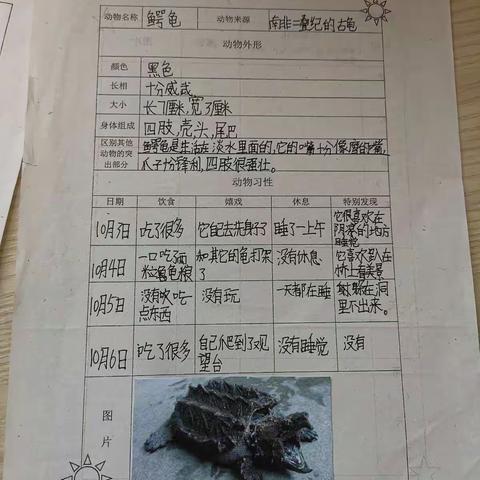 动物名称 鳄龟 动物来源 南非三叠纪的古龟
动物外形
颜色 黑色
长相 十分威武
大小 长7厘米,宽3厘米
身体组成 四肢,壳头,尾巴
区别其他动物的突出部分 鳄龟是生活在淡水里面的,它的嘴十分像鹰的嘴,
爪子十分锋利,四肢很强壮。
动物习性
日期 饮食 嬉戏 休息 特别发现
10月3日 吃了很多 它自己去洗身子了 睡了一上午 它很喜欢在阴凉的地方睡觉
10月4日 一口吃了两粒龟粮 和其它的龟打架了 没有休息 它喜欢趴在桥上看美景
10月5日 没有吃一点东西 没有玩 一天都在睡 躲在洞里不出来。
10月6日 吃了很多 自己爬到了观望台 没有睡觉 没有
图片